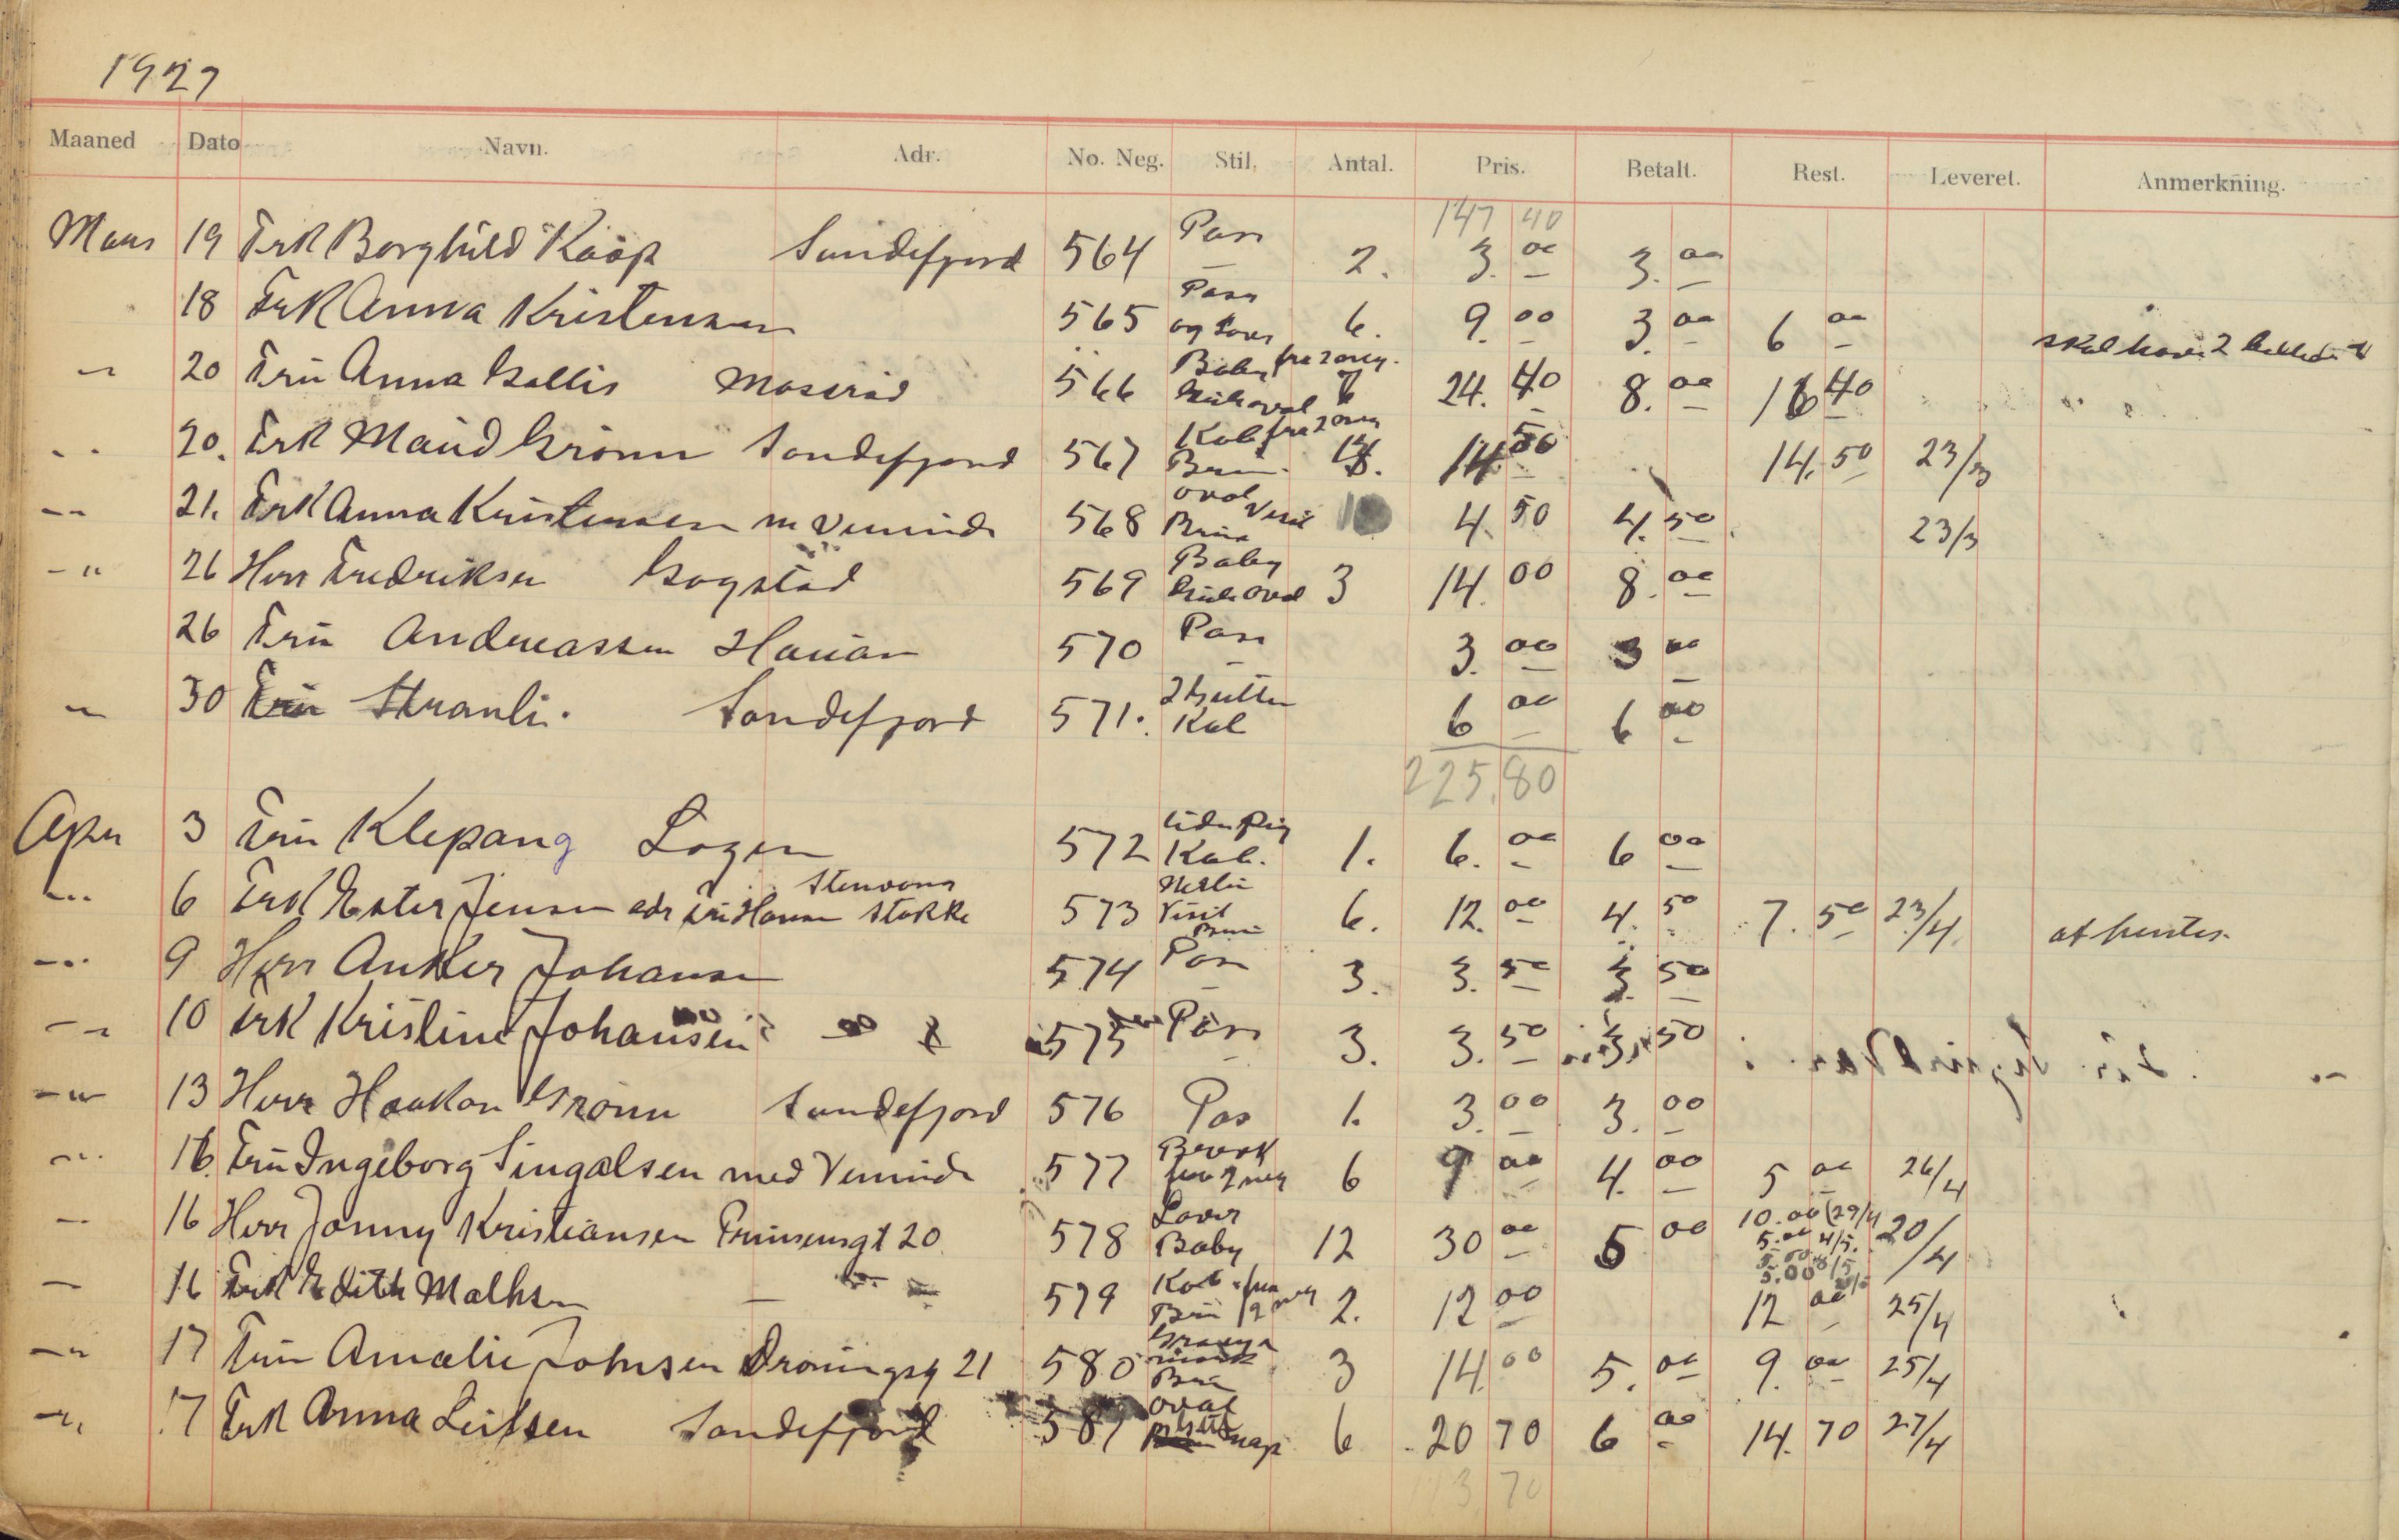 1927
Maaned Dato Navn. Adr. No. Neg. Stil. Antal. Pris. Betalt. Rest. Leveret. Anmerkning.
147 40
Mars 19 Frk Borghild Kaöp Sandefjord 564 Pas 2. 3.00 3.00
18 Frk Anna Kristensen 565 Pass og 6. 9.00 3.00 6 00 skal have 2
" 20 Fru Anna Gallis Moserød 566 Baby fra 2 neg. oval 24.40 8.00 16 40
" 20. Frk Maud Grönn Sandefjord 567 Kab fra 2 neg Brun 14 50 14.50 23/3
" 21. Frk Anna Kristensen m Veninde 568 oval Visit Brun 4.50 4.50 23/3
" 26 Herr Fredriksen Gogstad 569 Baby oval 3 14.00 8.00
26 Fru Andreassen Hauan 570 Pass 3.00 3 00
" 30 Fru Stranli. Sandefjord 571. Kab 6 00 6 00
225.80
April 3 Fru Klepang Lagen 572 Kab. 1. 6.00 6 00
" 6 Frk Ester Jensen adr Fru Hansen Stokke 573 Visit Brun 6. 12.00 4.50 7.50 23/4 afhentes.
" 9 Herr Anker Johansen 574 Pas 3. 3.50 3.50
" 10 Frk Kristine Johansen 575 Pass 3. 3.50 3.50
" 13 Herr Haakon Grönn Sandefjord 576 Pas 1. 3.00 3.00
" 16. Fru Ingeborg Singalsen med Veninde 577 fra 2 neg 6 9 00 4.00 5 00 26/4
" 16 Herr Jonny Kristiansen Prinsensgt 20 578 Baby 12 30 00 5 00 10.00 (29/4 20/4
5.00 4/5.
5.00
" 16 Frk Edith Mathsen 579 Kab fra Brun 2 neg 2. 12 00 12 00 25/4
" 17 Fru Amalie Johnsen Droningsg 21 580 Brun 3 14.00 5.00 9.00 25/4
" 17 Frk Anna Leifsen Sandefjord 581 oval 6 20 70 6 00 14.70 27/4
3 70